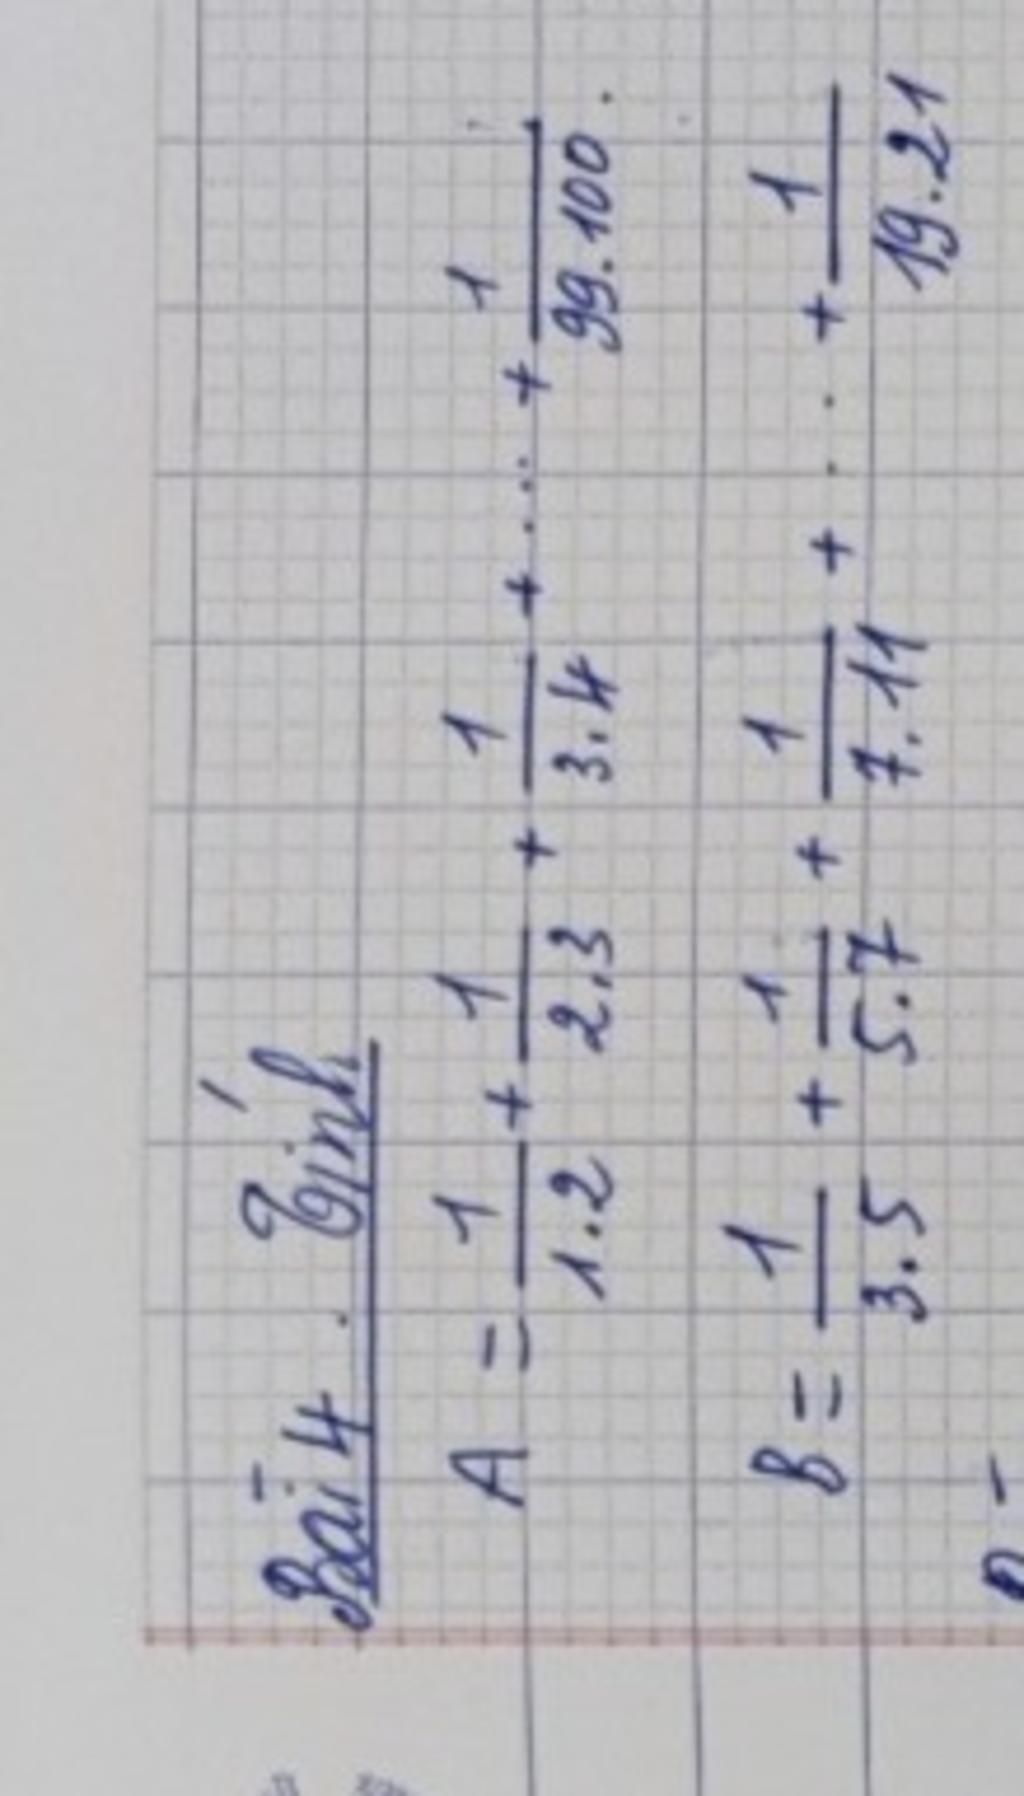 Bài 4. Tính
A = 1/1.2 + 1/2.3 + 1/3.4 + ... + 1/99.100.
B = 1/3.5 + 1/5.7 + 1/7.11 + ... + 1/19.21